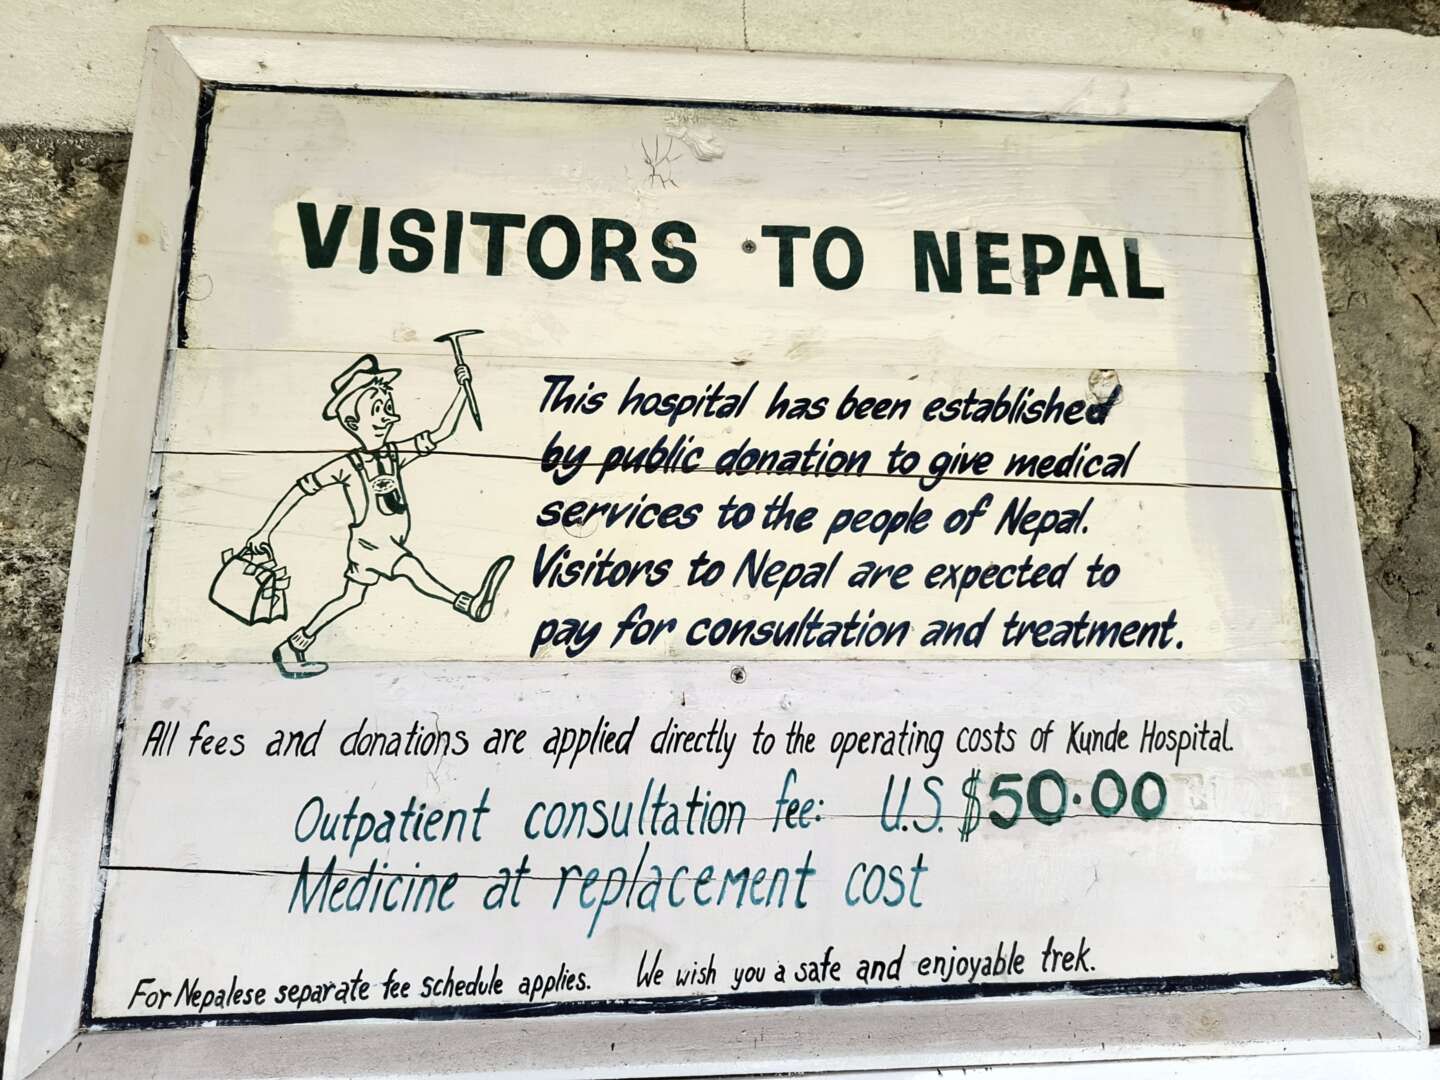 VISITORS TO NEPAL
This hospital has been established
by public donation to give medical
services to the people of Nepal.
Visitors to Nepal are expected to
pay for consultation and treatment.
All fees and donations are applied directly to the operating costs of Kunde Hospital.
Outpatient consultation fee: U.S. $50.00
Medicine at replacement cost
For Nepalese separate fee schedule applies. We wish you a safe and enjoyable trek.